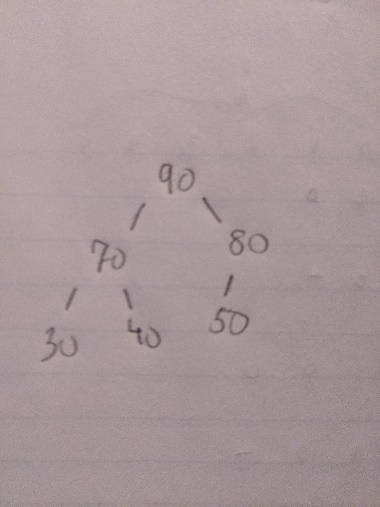 90
70 80
30 40 50